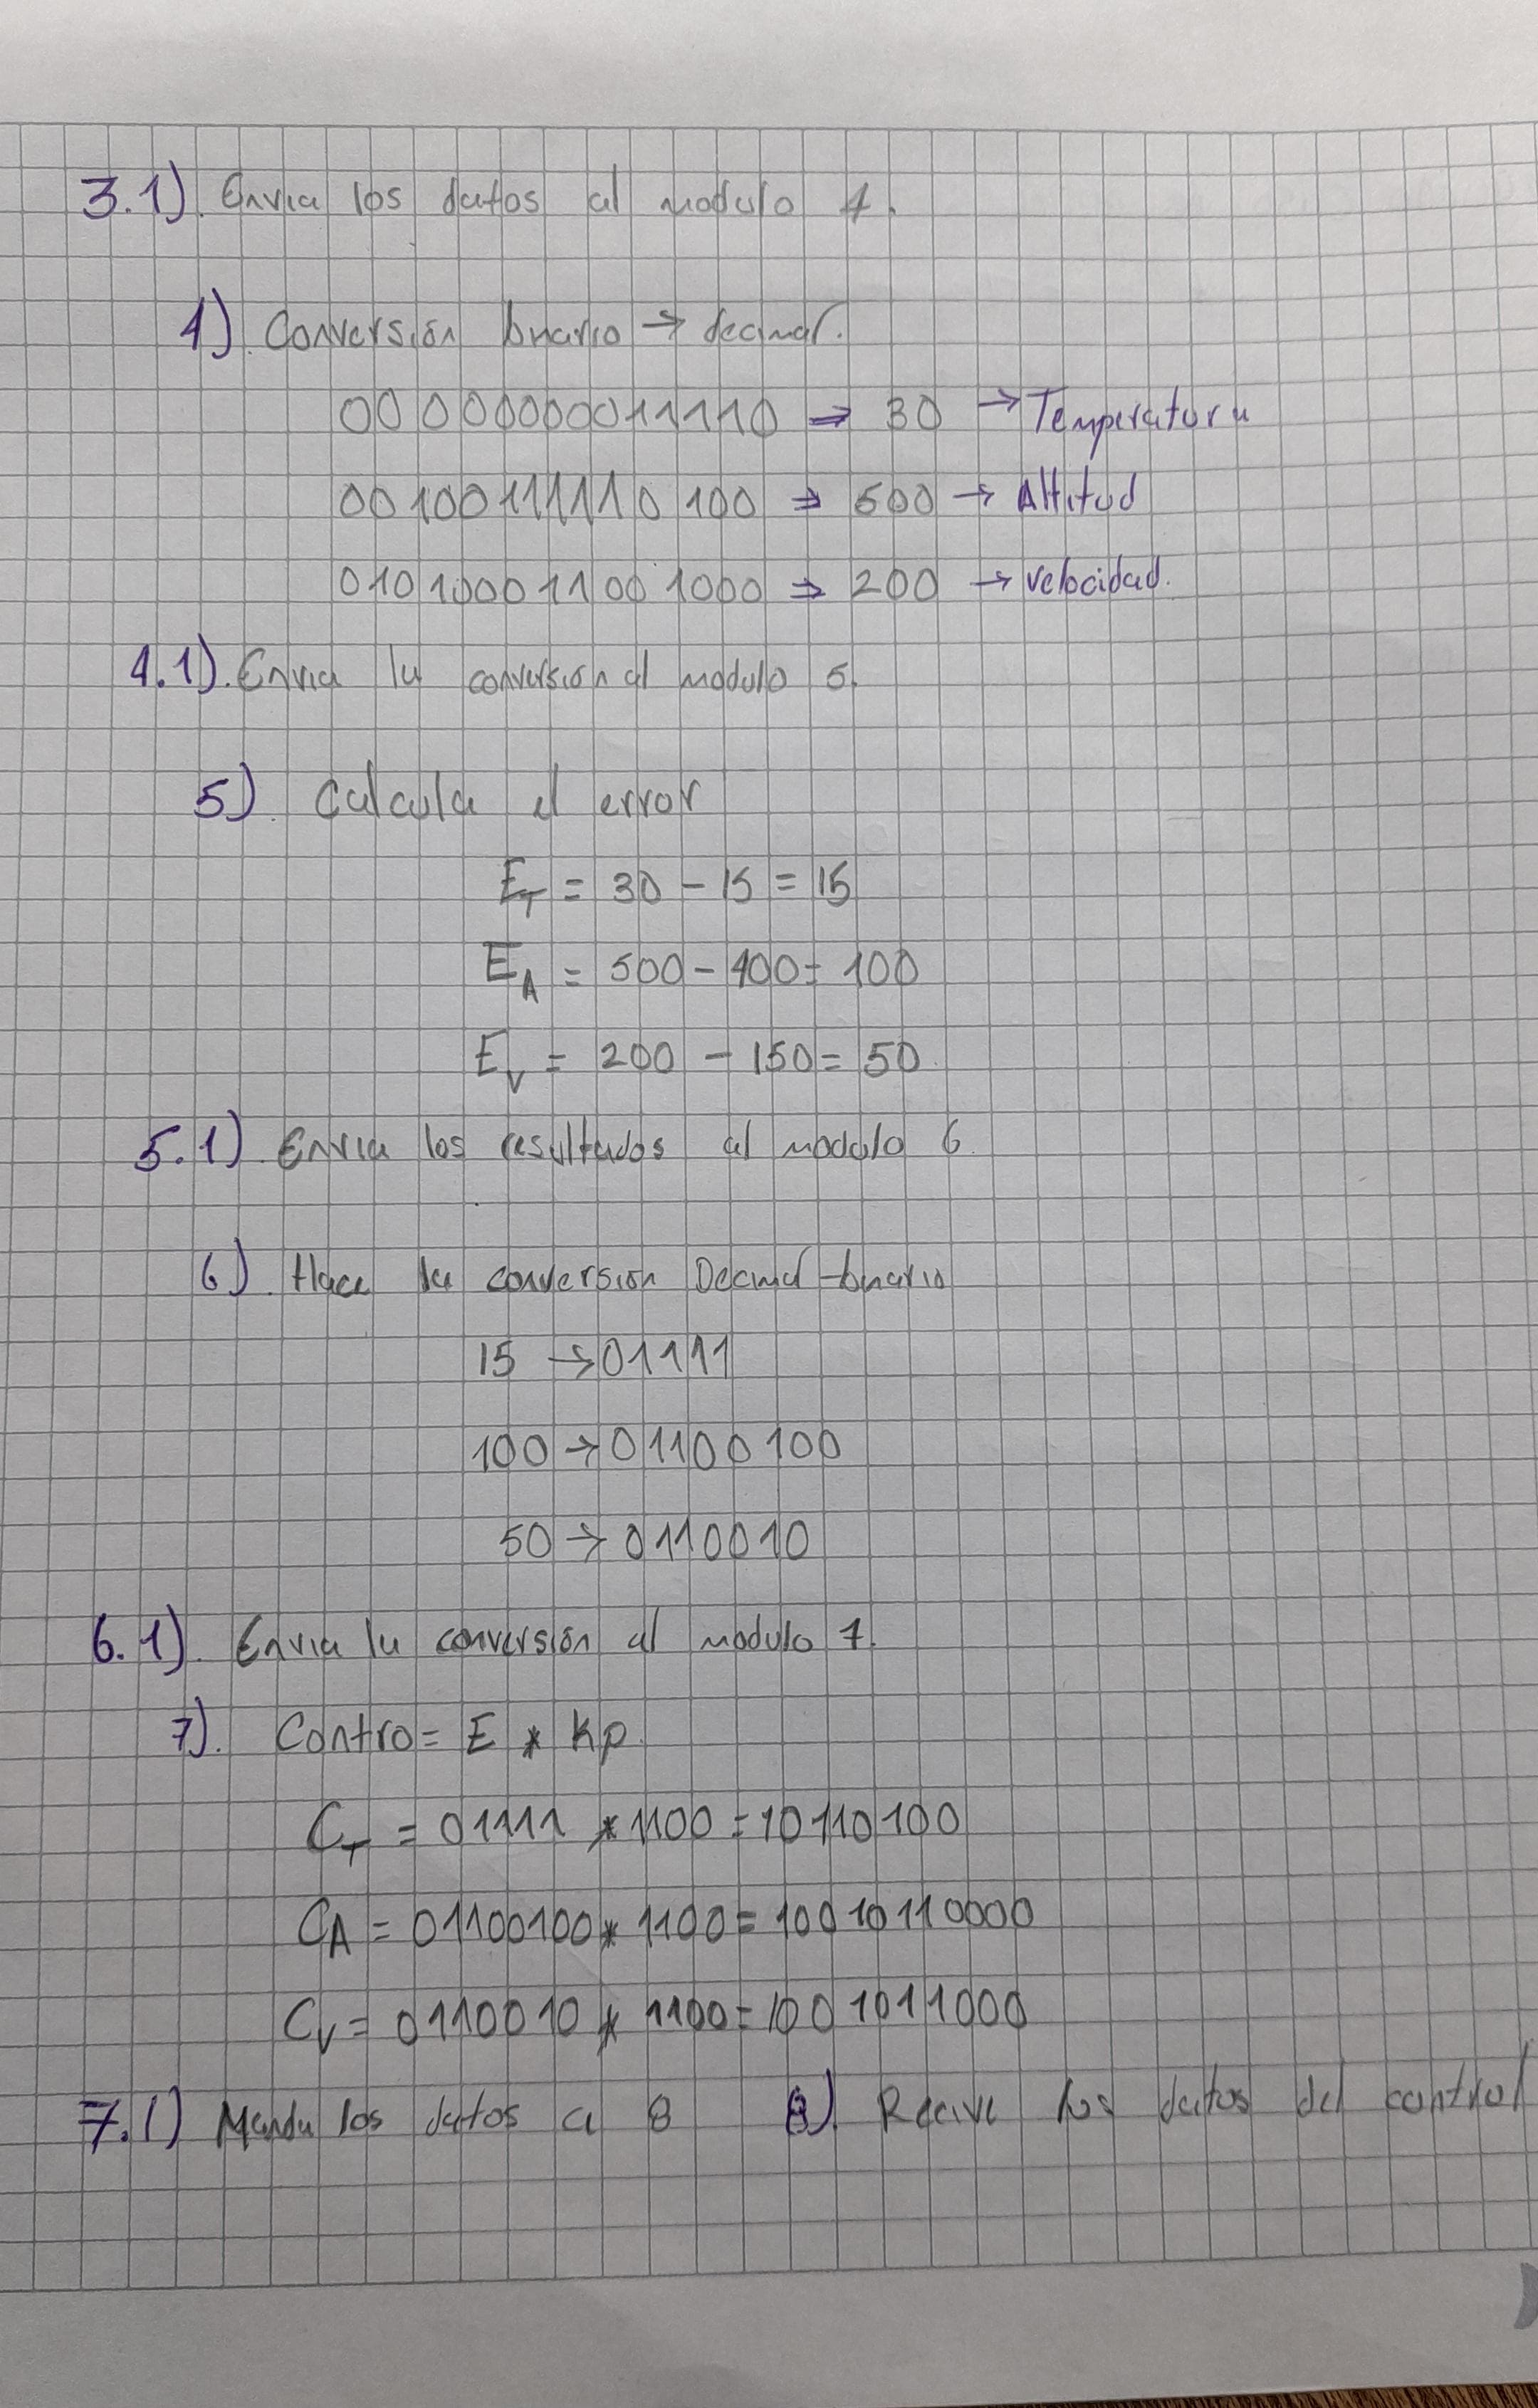 3.1). Envia los datos al modulo 4.
4). Conversión binario → decimal.
00 0000000011110 ⇒ 30 → Temperatura
0010011111110 100 ⇒ 500 → Altitud
010100011001000 ⇒ 200 → velocidad.
4.1). Envia la conversion al modulo 5.
5). Calcula el error
E_T = 30 - 15 = 15
E_A = 500 - 400 = 100
E_V = 200 - 150 = 50
5.1). Envia los resultados al modulo 6.
6). Hace la conversion Decimal-binario
15 → 01111
100 → 01100100
50 → 0110010
6.1). Envia la conversión al modulo 7.
7). Contro = E * Kp
C_T = 01111 * 1100 = 10110100
C_A = 01100100 * 1100 = 10010110000
C_V = 0110010 * 1100 = 1001011000
7.1) Manda los datos a 8 8). Recive los datos del control